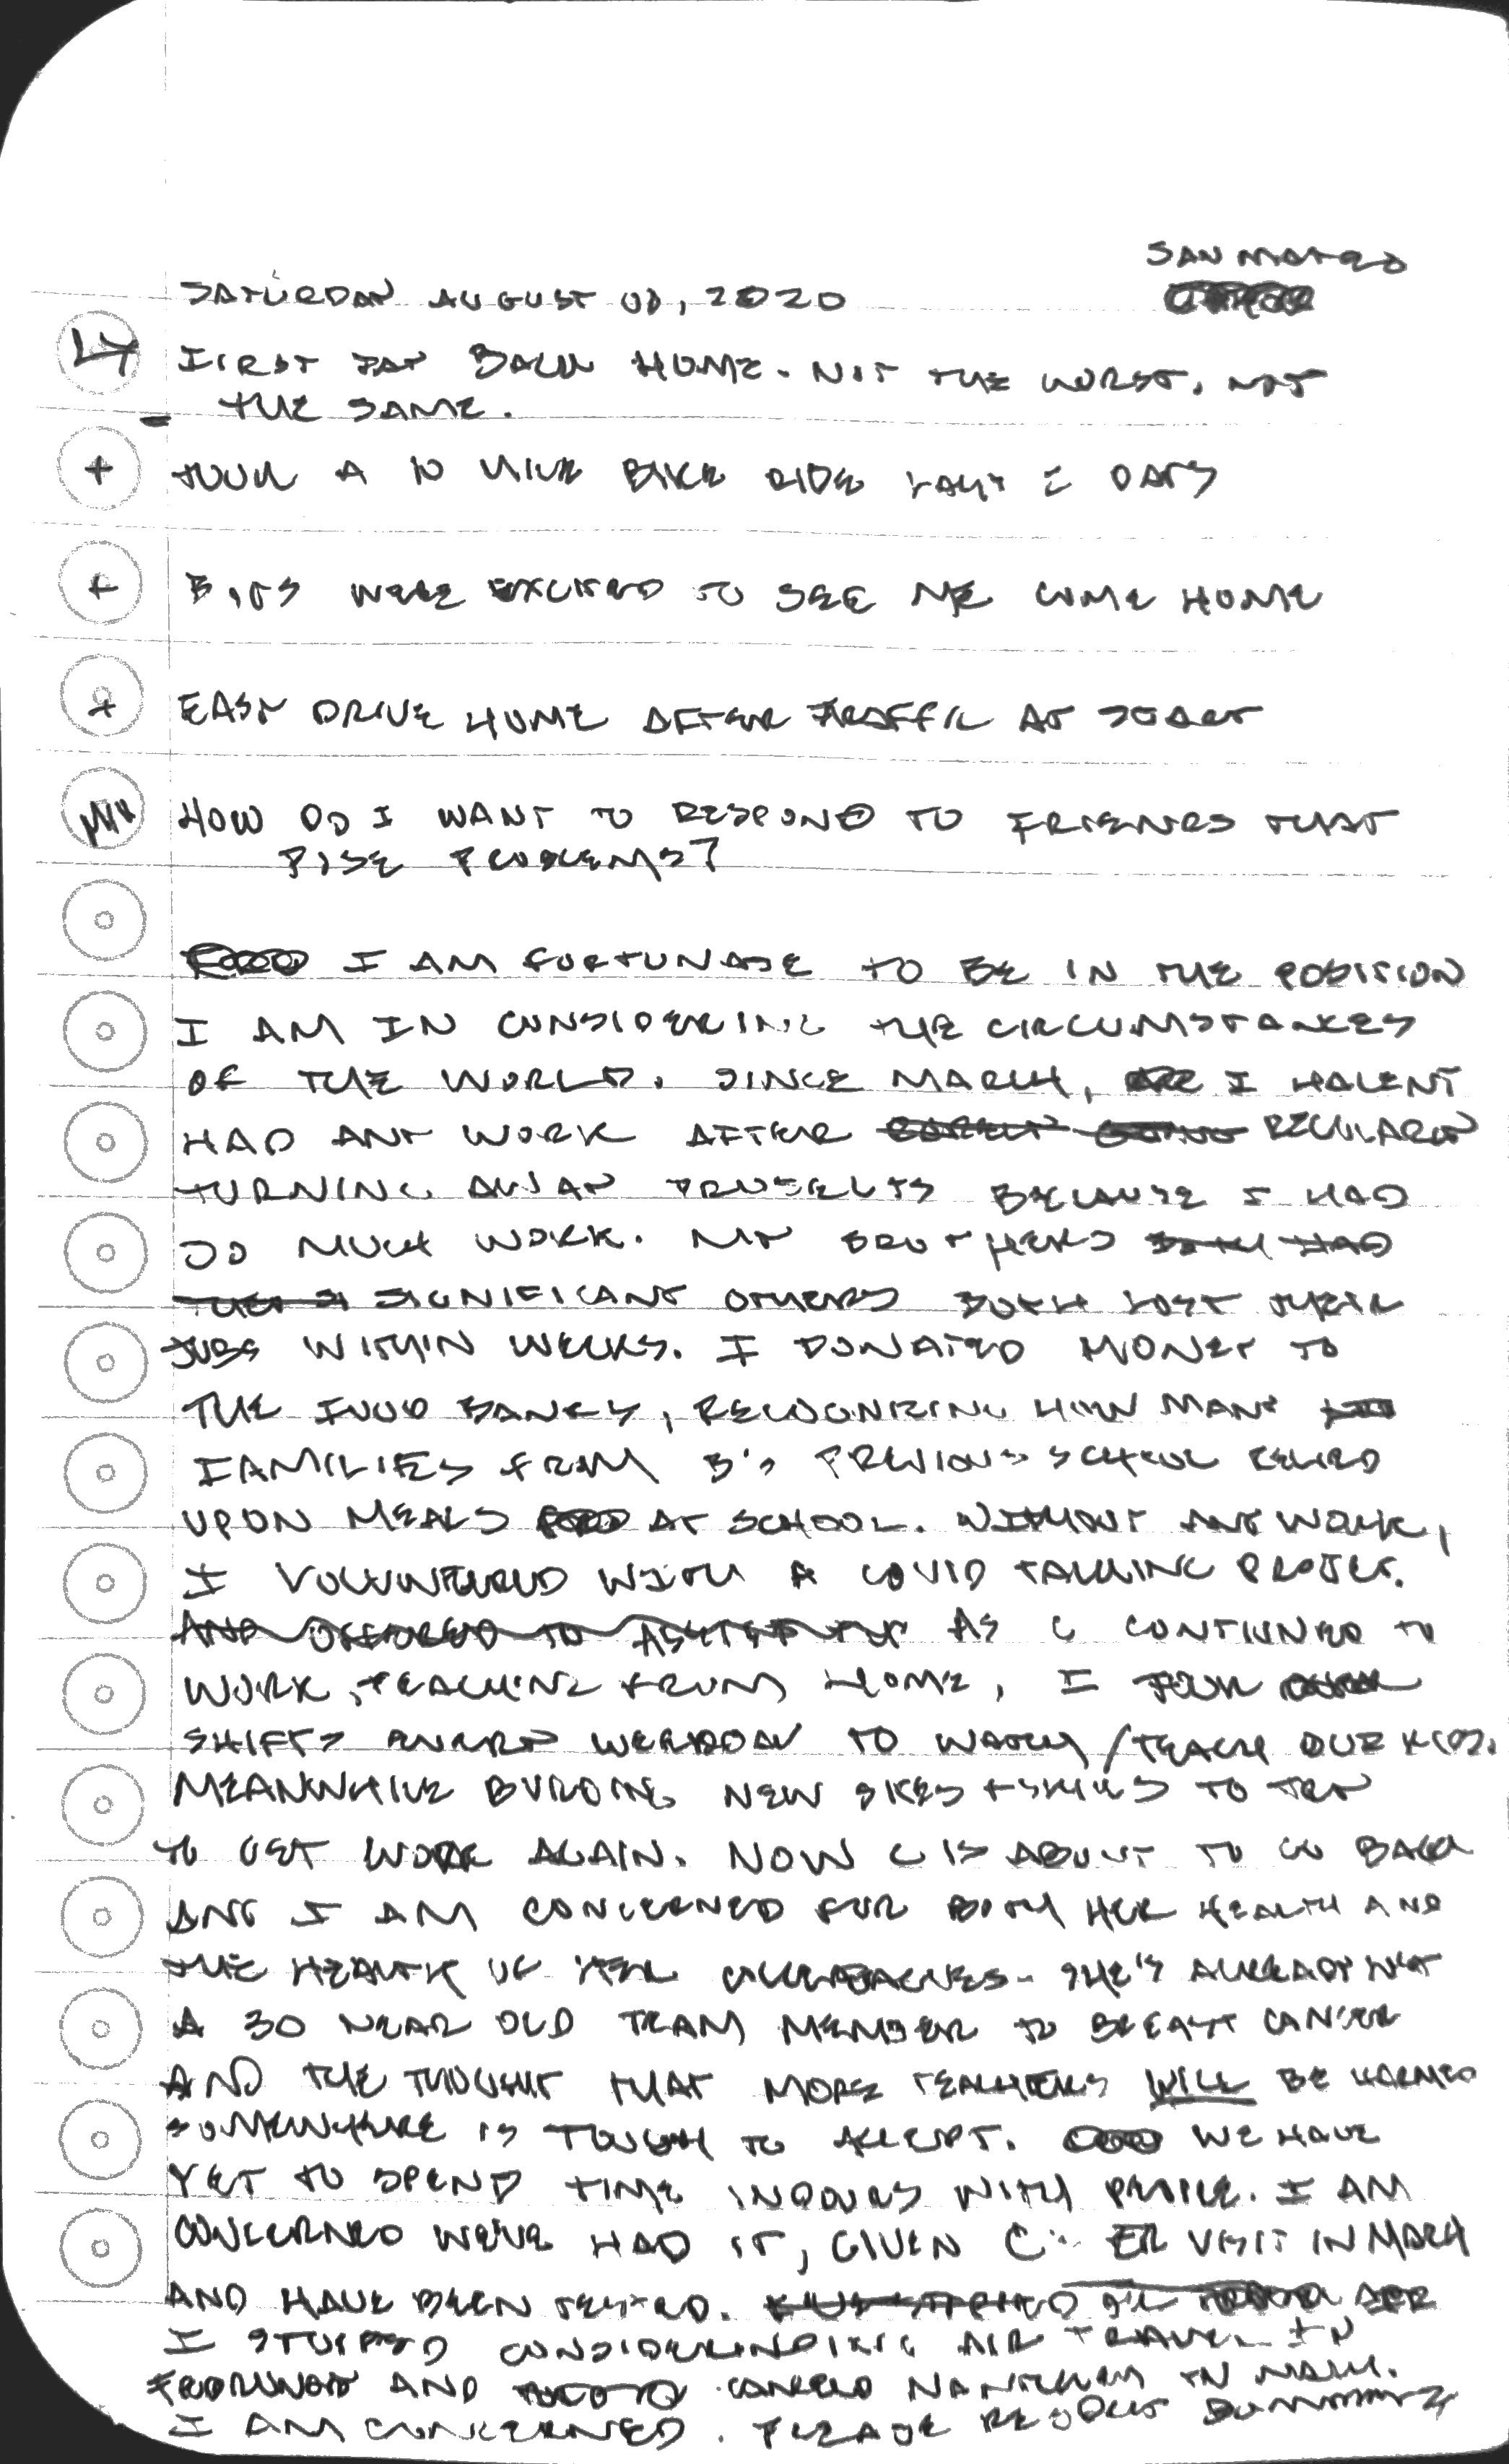 SAN MATEO
SATURDAY AUGUST 01, 2020
FIRST DAY BACK HOME. NOT THE WORST, NOT
THE SAME.
+ TOOK A 10 MILE BIKE RIDE LAST 2 DAYS
+ BOYS WERE EXCITED TO SEE ME COME HOME
+ EASY DRIVE HOME AFTER TRAFFIC AT START
HOW DO I WANT TO RESPOND TO FRIENDS THAT
POSE PROBLEMS?
I AM FORTUNATE TO BE IN THE POSITION
I AM IN CONSIDERING THE CIRCUMSTANCES
OF THE WORLD. SINCE MARCH, I HAVENT
HAD ANY WORK AFTER REGULARLY
TURNING AWAY PROJECTS BECAUSE I HAD
SO MUCH WORK. MY BROTHERS
SIGNIFICANT OTHERS BOTH LOST THEIR
JOBS WITHIN WEEKS. I DONATED MONEY TO
THE FOOD BANKS, RECOGNIZING HOW MANY
FAMILIES FROM B'S PREVIOUS SCHOOL RELIED
UPON MEALS AT SCHOOL. WITHOUT ANY WORK,
I VOLUNTEERED WITH A COVID TRACKING PROJECT.
AS C CONTINUED TO
WORK, TEACHING FROM HOME, I TOOK
SHIFTS EVERY WEEKDAY TO WATCH/TEACH OUR KIDS.
MEANWHILE BUILDING NEW SKILLS TO TRY
TO GET WORK AGAIN. NOW C IS ABOUT TO GO BACK
AND I AM CONCERNED FOR BOTH HER HEALTH AND
THE HEALTH OF HER COLLEAGUES. SHE'S ALREADY LOST
A 30 YEAR OLD TEAM MEMBER TO BREAST CANCER
AND THE THOUGHT THAT MORE TEACHERS WILL BE HARMED
SOMEWHERE IS TOUGH TO ACCEPT. WE HAVE
YET TO SPEND TIME INDOORS WITH PEOPLE. I AM
CONCERNED WE'VE HAD IT, GIVEN C'S ER VISIT IN MARCH
AND HAVE BEEN TESTED.
I STOPPED CONSIDERING AIR TRAVEL IN
FEBRUARY AND IN MARCH.
I AM CONCERNED. PLEASE